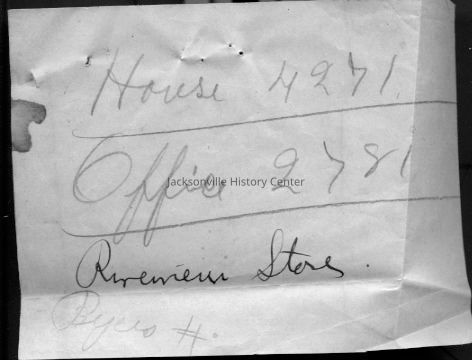 House 4271.
Office 2781
Jacksonville History Center
Riverview Store.